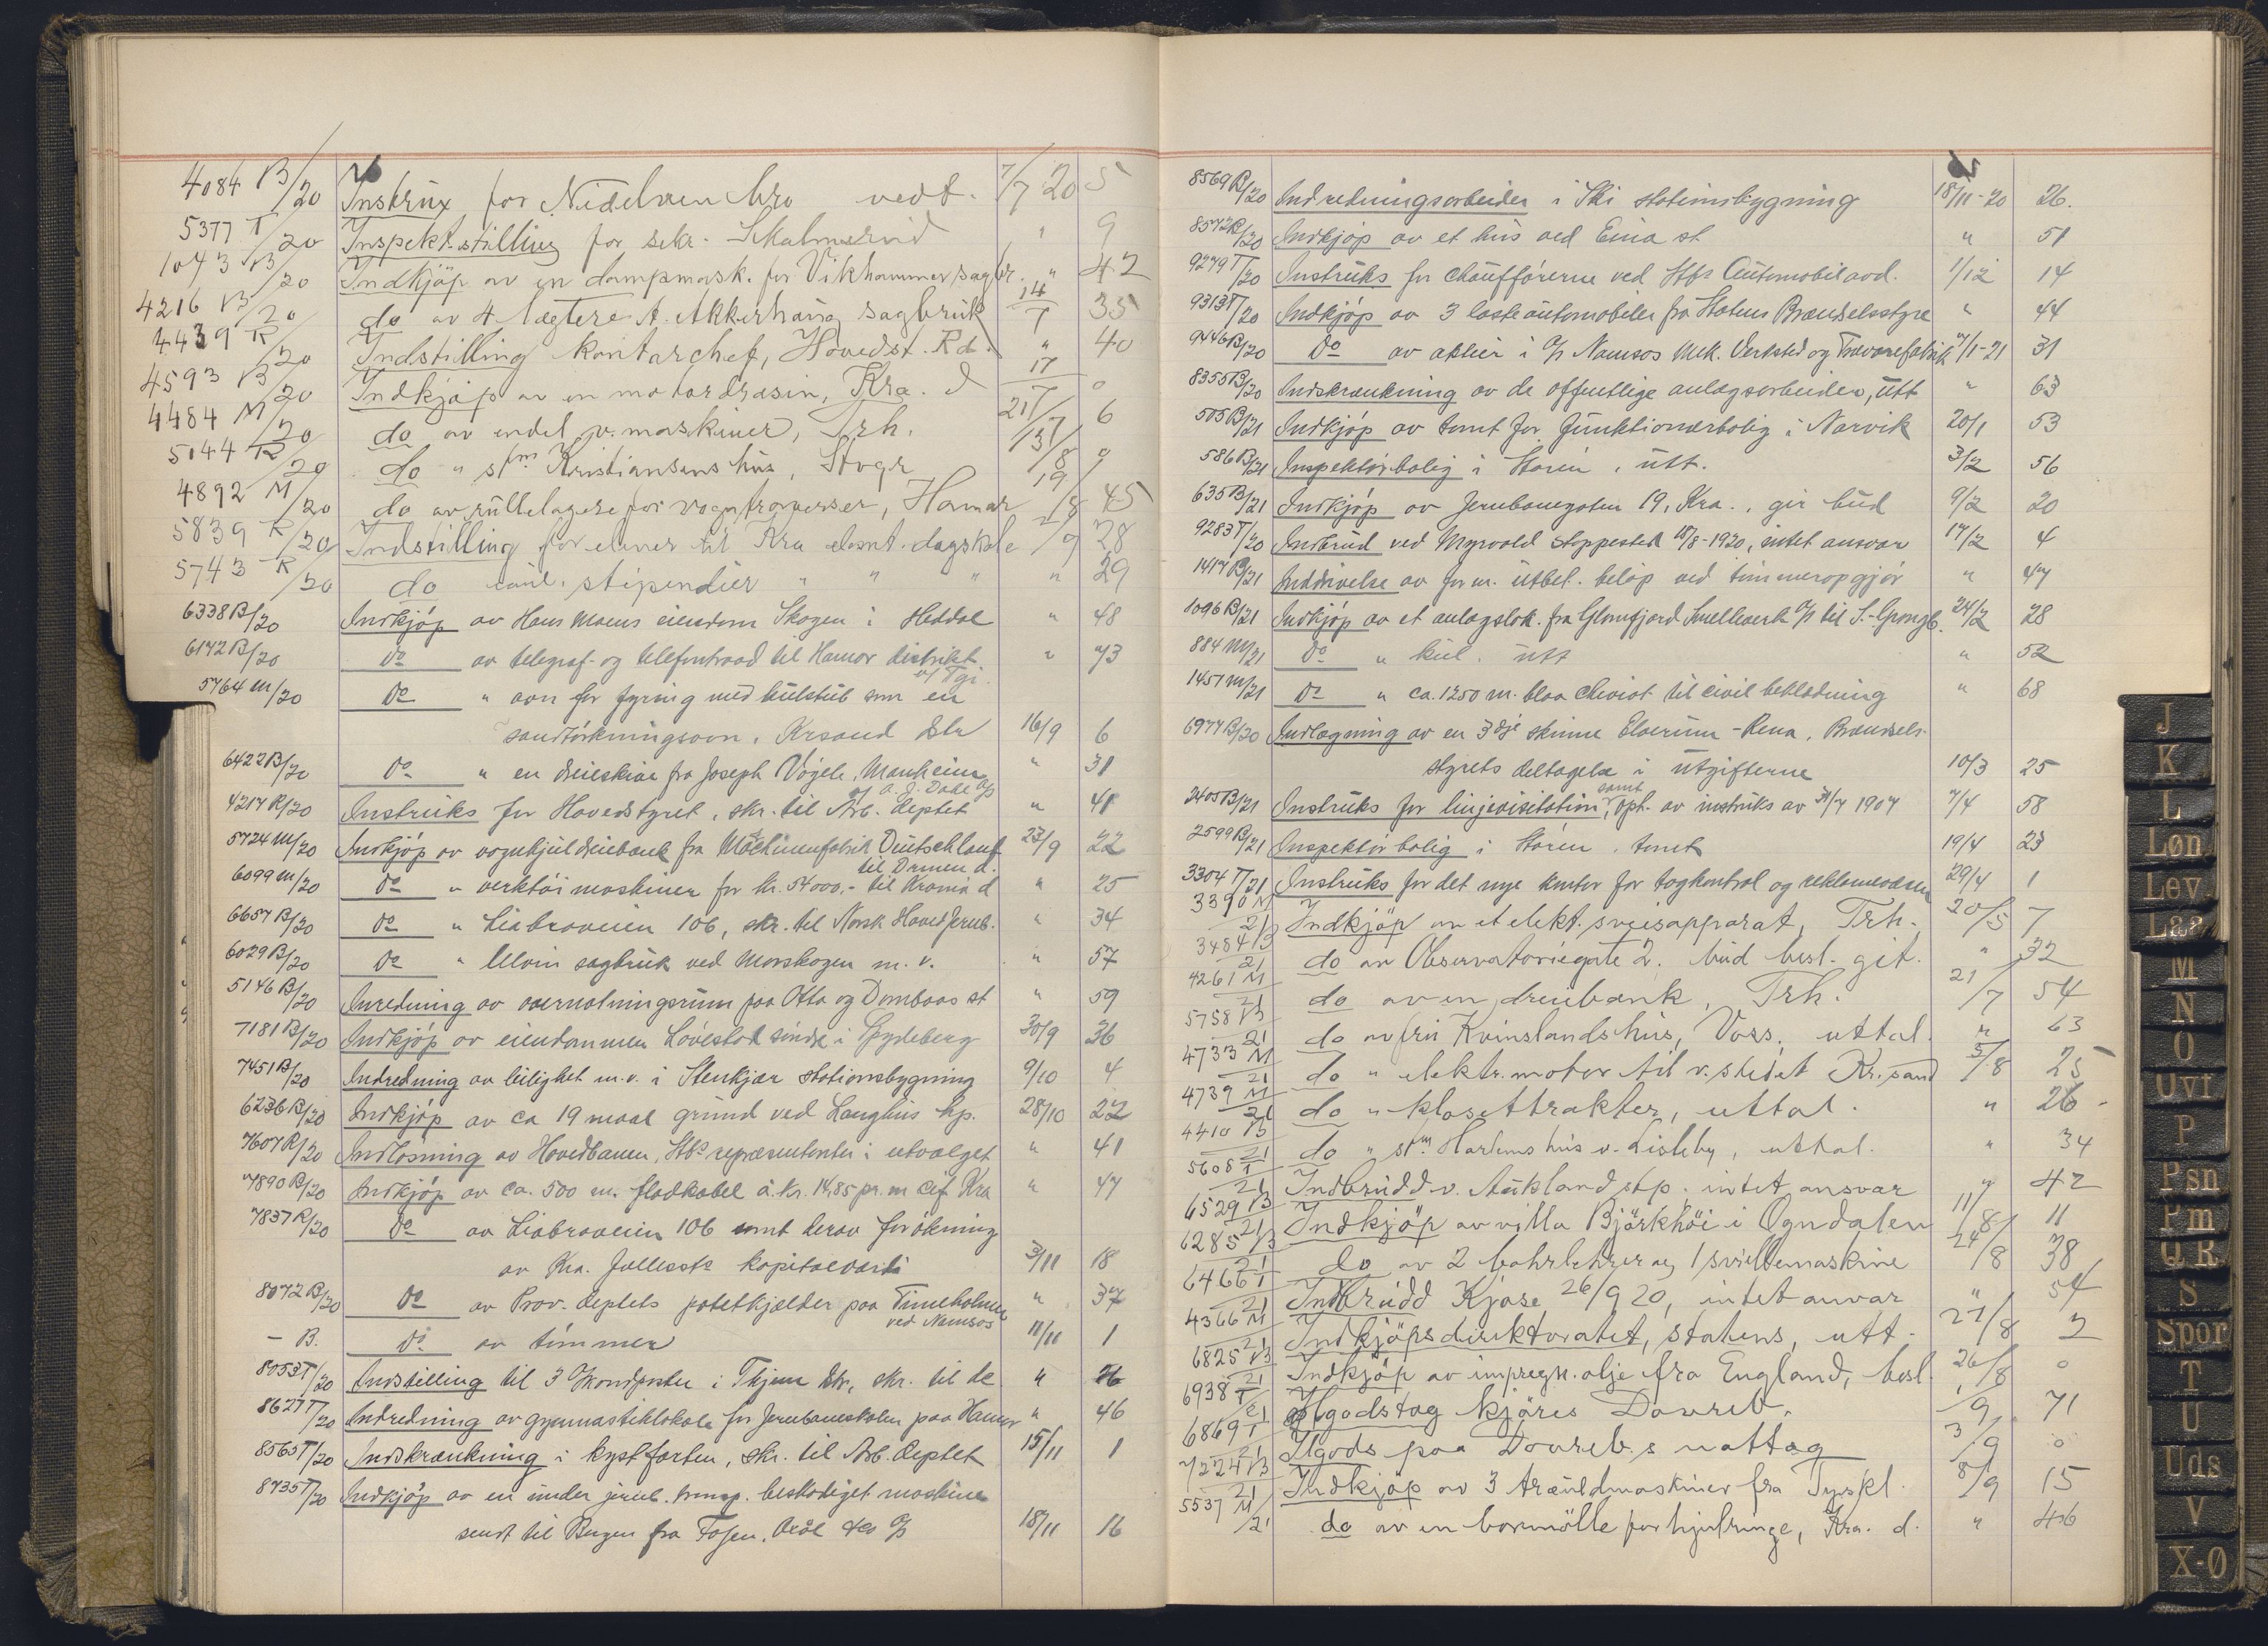 4084 B/20 Instrux for Nidelven bro vedt. 7/7 20 5
5377 T/20 Inspekt.stilling for sekr. Skalmerud " 9
1043 B/20 Indkjöp av en dampmask. for Vikhammer sagbr. " 42
4216 B/20 do av 4 lægtere A. Akkerhaug sagbruk 14/7 35
4439 R/20 Indstilling kontorchef, Hovedst. Rd. " 40
4593 B/20 Indkjöp av en motordræsin, Kra. d 17/7 0
4484 M/20 do av endel v.maskiner, Trh. 21/7 6
5144 R/20 do " stm Kristiansens hus, Stvgr 13/8 9
4892 M/20 do av rullelagere for vogntraverser, Hamar 19/8 45
5839 R/20 Indstilling for elever til Kra elemt. dagskole 2/9 28
5743 R/20 do stipendier " " " " 29
6338 B/20 Indkjöp av Hans Moens eiendom Skogen i Heddal " 48
6142 B/20 do av telegraf- og telefontraad til Hamar distrikt " 73
5764 M/20 do " ovn for fyring med kulstub som en
sandtörkningsovn, Krsand Dstr 16/9 6
6422 B/20 do " en dreieskive fra Joseph Vögele, Manheim " 31
4217 R/20 Instruks for Hovedstyret, skr. til Arb. deptet " 41
5724 M/20 Indkjöp av vognhjuldreiebænk fra Machinenfabrik Deutschland 23/9 22
til Drmen d.
6099 M/20 do " verktöimaskiner for kr. 54000.- til Krania d " 25
6657 B/20 do " Liabroveien 106, skr. til Norsk Hoved Jernb. " 34
6029 B/20 do " Ulvin sagbruk ved Morskogen m. v. " 57
5146 B/20 Inredning av overnatningsrum paa Otta og Dombaas st " 59
7181 B/20 Indkjöp av eiendommen Lövestad söndre i Spydeberg 30/9 36
7451 B/20 Indredning av leilighet m.v. i Stenkjær stationsbygning 9/10 4
6236 B/20 Indkjöp av ca 19 maal grund ved Langhus hp. 28/10 22
7607 R/20 Indlösning av Hovedbanen, Stbs repræsentanter i utvalget " 41
7890 B/20 Indkjöp av ca. 500 m. flodkabel à kr. 14,85 pr. m cif Kra " 47
7837 R/20 do av Liabroveien 106 samt derav forökning
av Kra. Fællesst kapitalværdi 3/11 18
8072 B/20 do av Prov. deptets potetkjelder paa Timeholmen " 37
ved Namsos
- B. do av tømmer 11/11 1
8053 T/20 Indstilling til 3 i Thjem dstr, skr. til de " 26
8627 T/20 Indredning av gymnastiklokale for Jernbaneskolen paa Hamar " 46
8565 T/20 Indskrænkning i kystfarten, skr. til Arb. deptet 15/11 1
8735 T/20 Indkjöp av en under jernb. transp. beskadiget maskine
sendt til Bergen fra Fosen, & Co A/S 18/11 16
8569 B/20 Indredningsarbeider i Ski stationsbygning 18/11-20 26.
8572 R/20 Indkjöp av et hus ved Eina st " 51
9279 T/20 Instruks for chaufförerne ved Stbs Automobilavd. 1/12 14
9313 T/20 Indkjöp av 3 lasteautomobiler fra Statens Brændselsstyre " 44
9446 B/20 do av aktier i A/S Namsos Mek. Verksted og Trævarefabrik 7/1-21 31
8355 B/20 Indskrænkning av de offentlige anlægsarbeider, utt " 63
505 B/21 Indkjöp av tomt for funktionærbolig i Narvik 20/1 53
586 B/21 Inspektörbolig i Støren, utt. 3/2 56
635 B/21 Indkjöp av Jernbanegaten 19, Kra., gir bud 9/2 20
9283 T/20 Indbrud ved Myrvold stoppested 18/8-1920, intet ansvar 17/2 4
1417 R/21 Inddrivelse av form. utbet. beløp ved tømmeropgjør " 47
1096 B/21 Indkjöp av et anlægslok. fra Glomfjord Smelteverk A/S til S.-Grongb. 24/2 28
884 M/21 do " kul. utt " 52
1451 M/21 do " ca. 1250 m. blaa cheviot til civil beklædning " 68
6977 B/20 Indlægning av en 3dje skinne Elverum-Rena, Brændsels-
styrets deltagelse i utgifterne 10/3 25
2405 B/21 Instruks for linjevisitation, samt opt. av instruks av 31/7 1907 7/4 58
2599 B/21 Inspektörbolig i Støren, tomt 19/4 23
3304 T/21 Instruks for det nye kontor for togkontrol og reklamevæsen 29/4 1
3390 M/21 Indkjöp av et elekt. sveisapparat, Trh. 20/5 7
3484 B/21 do av Observatoriegate 2. bud besl. git. " 32
4261 M/21 do av en dreiebænk, Trh. 21/7 54
5758 B/21 do av fru Kvinslands hus, Voss, uttal. " 63
4733 M/21 do " elektr. motor til v.stedet Kr.sand 5/8 25
4739 M/21 do " klosettrakter, uttal. " 26
4410 B/21 do " stm Harlems hus v. Lisleby, uttal. " 34
5608 T/21 Indbrudd v. Aukland stp. intet ansvar " 42
6529 B/21 Indkjöp av villa Björkhöi i Ogndalen 11/8 11
6285 B/21 do av 2 og 1 maskine 24/8 38
6466 T/21 Indbrudd Kjose 26/9 20, intet ansvar " 54
4366 M/21 Indkjöpsdirektoratet, statens, utt. 27/8 2
6825 B/21 Indkjöp av impregn. olje fra England, besl. 26/8 0
6938 T/21 Ilgodstog kjöres Dovreb. 1/9 71
6869 T/21 Ilgods paa Dovreb.s nattog 3/9 0
7224 B/21 Indkjöp av 3 træuldmaskiner fra Tyskl. 8/9 15
5537 M/21 do av en boremölle for hjulringe, Kra. d. " 46
J
K
L
Løn
Lev.
Laa
M
N
O
Ovf
P
Psn
Pm
Q.R.
S
Spor
T
U
Uds
V
X-Ø